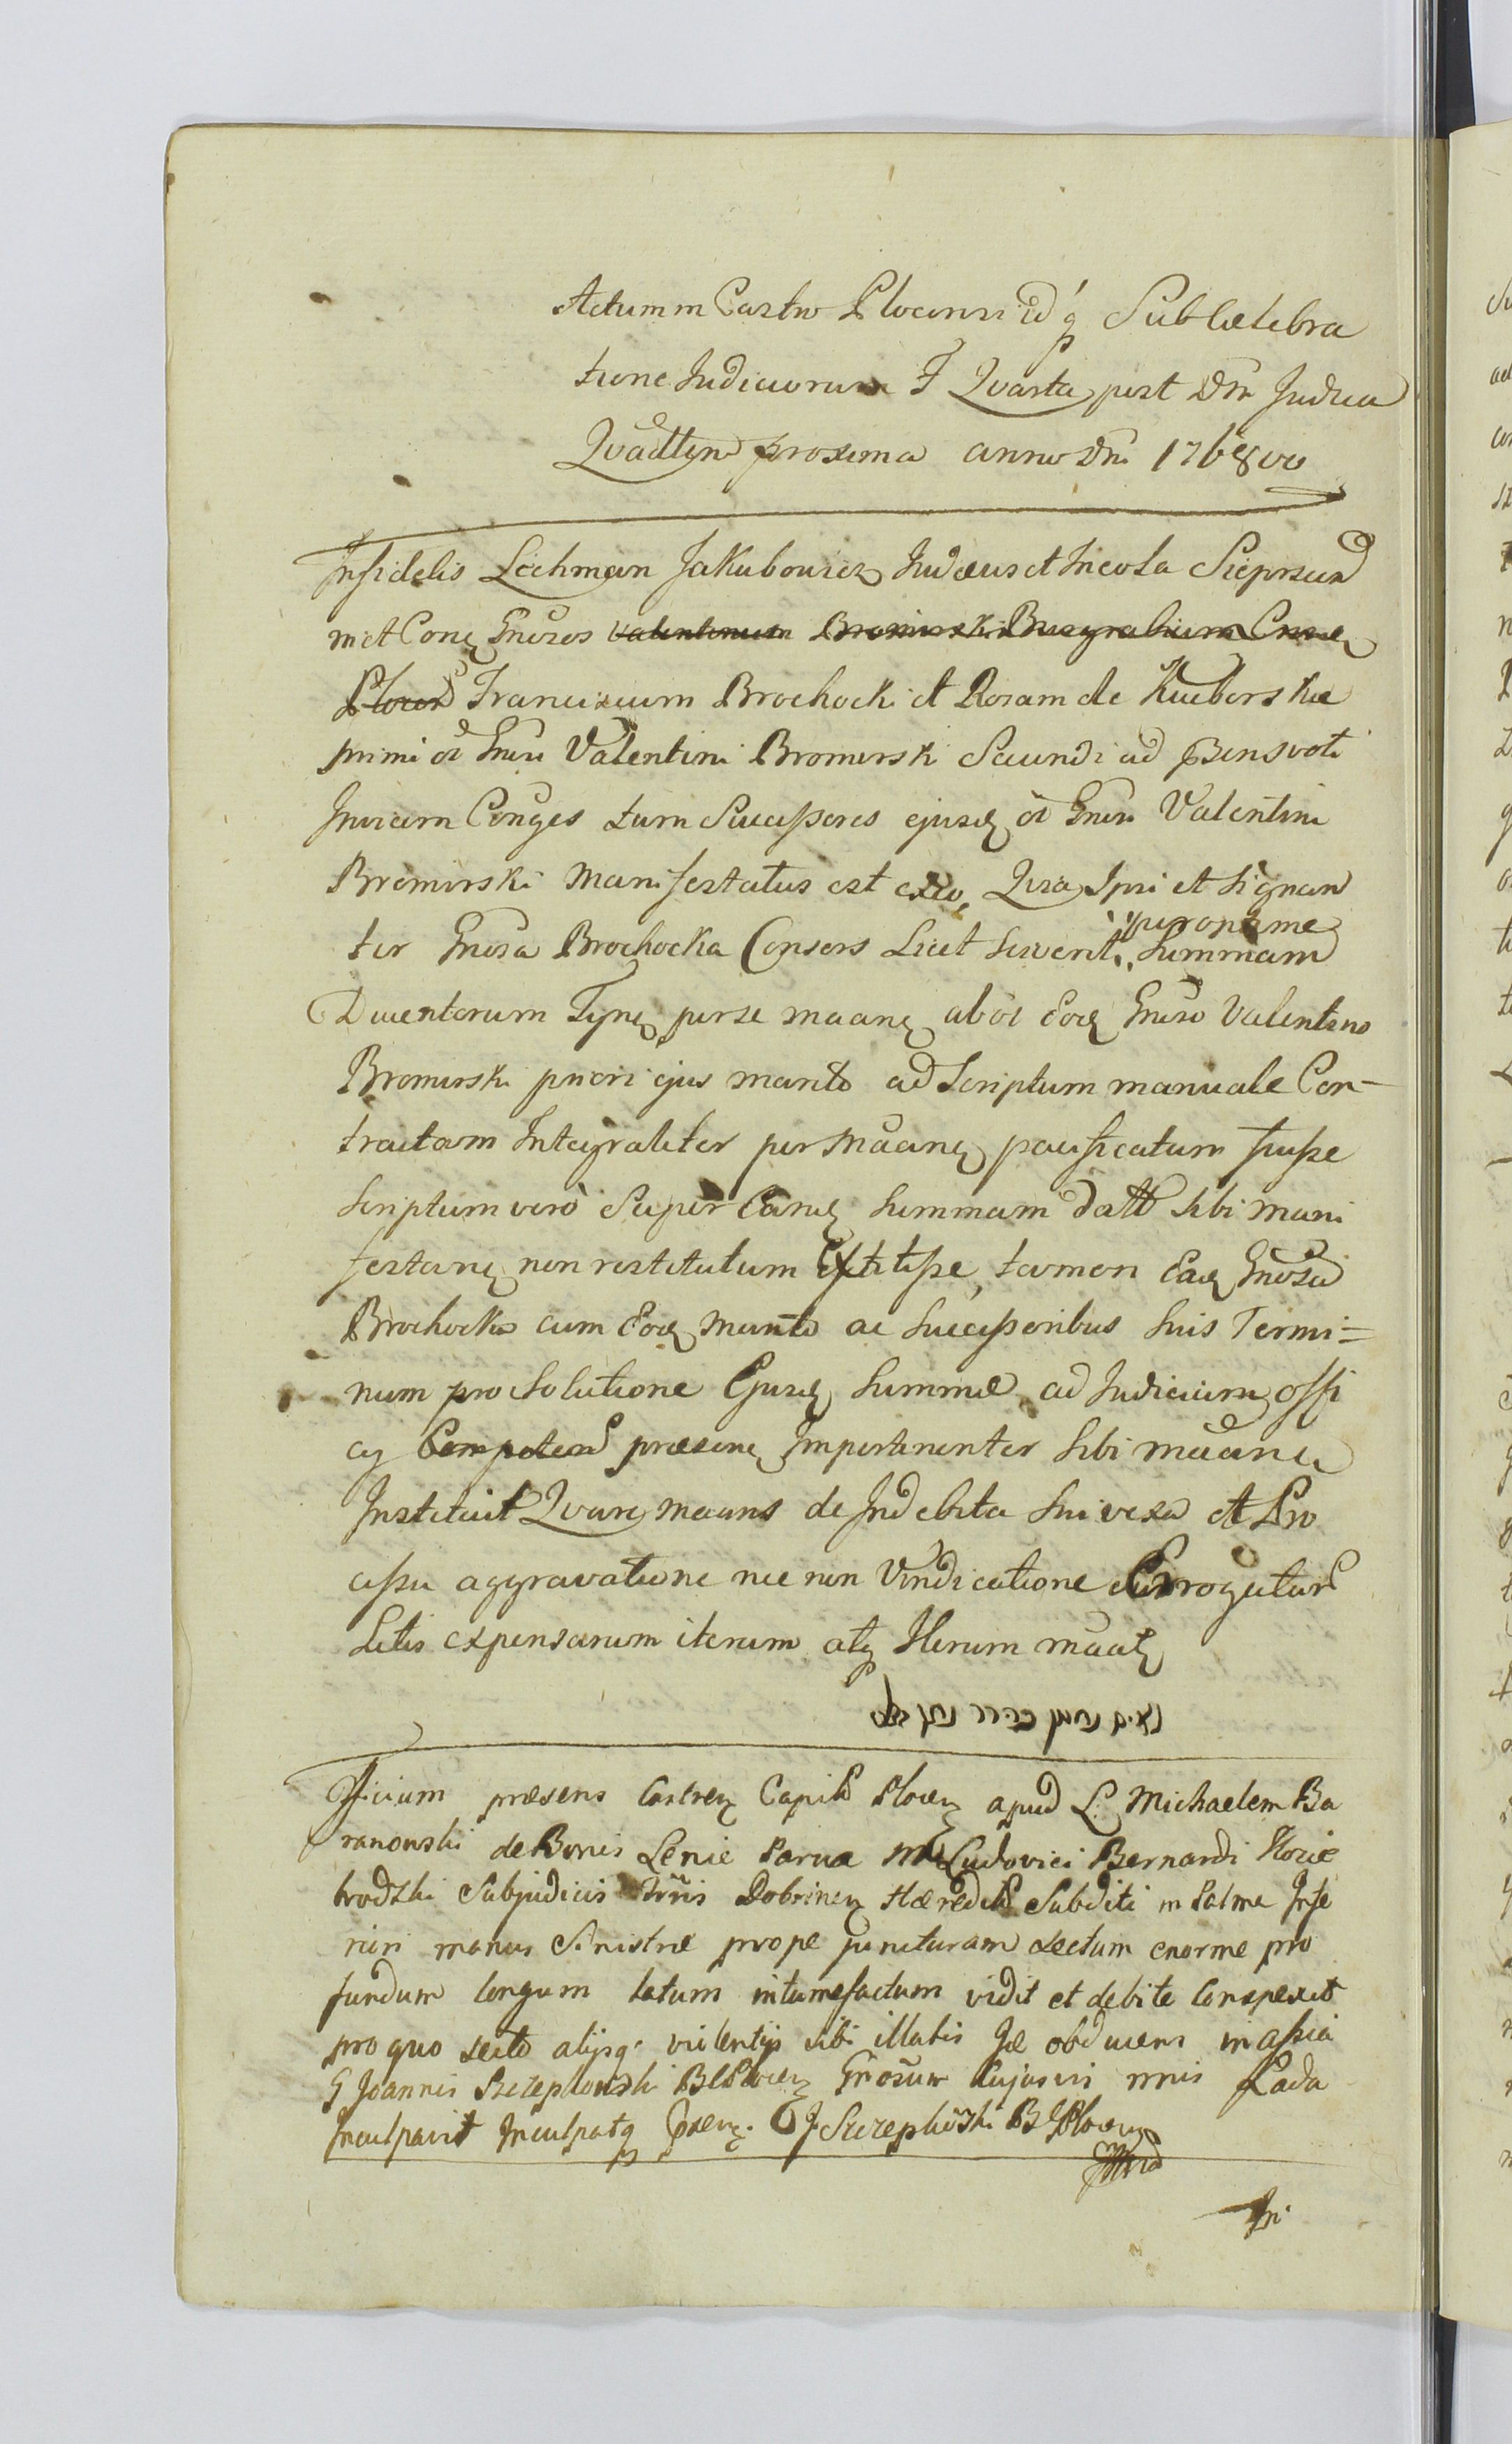 Actum in Castro Plocensi idq Sub Celebra
tione Judiciorum F Quarta post Dm Judica
Quadllem proxima anno Dni 1768vo
Infidelis Lechman Jakubowicz Judaeus et Incola Sieprscen
in et Conq Gnosos Valentinum Bromirski Burgrabium Craeq
Plocen Franciscum Brochocki et Rosam de Kucborskie
primi oi Gnosi Valentini Bromirski Secundi ad psens voti
Invicem Conges tum Successores ejusq oi Gnosi Valentini
Bromirski manifestatus est exeo, Quia Ipsi et signan
ter Gnosa Brochocka Consors Licet Sciverit
optime
Summam
Ducentorum Tynq per se maanq aboi Eoq Gnoso Valentino
Bromirski priori ejus marito ad Scriptum manuale Con-
tractam Integraliter per maanq pacificatum fuisse
Scriptum vero Super Eanq Summam datt sibi mani
festanq non restitutum Extitisse, tamen Eaq Gnosa
Brochocka cum Eoq marito ac Successoribus Suis Termi=
num pro Solutione Ejusq Summae ad Judicium offi
cy Competen praesenq Impertinenter Sibi maanq
Instituit Quare maans de Indebita Sui vexa et Pro
cessu aggravatione nec non Vindicatione Errogatar
Litis expensarum iterum atq Iterum maatq
נאים נחמן בהרר נתן זצל
Officium praesens Castren Capitle Plocen apud L. Michaelem Ba
ranowski de Bonis Lenie Parva MG Ludovici Bernardi Kozie
brodzki Subjudicis Trris Dobrinen Haeredit Subditi in Palma Infe
riori manus Sinistrae prope juncturam Sectum enorme pro
fundum longum latum intumefactum vidit et debite Conspexit
pro quo secto alijsq violentijs sibi illatis Je obducens in assia
G Joannis Szczeplowski BCPlocen Gnosum Cujusvis nnis Lada
Inculpavit Inculpatq psenq. J Szczepkowski BCPlocen
In